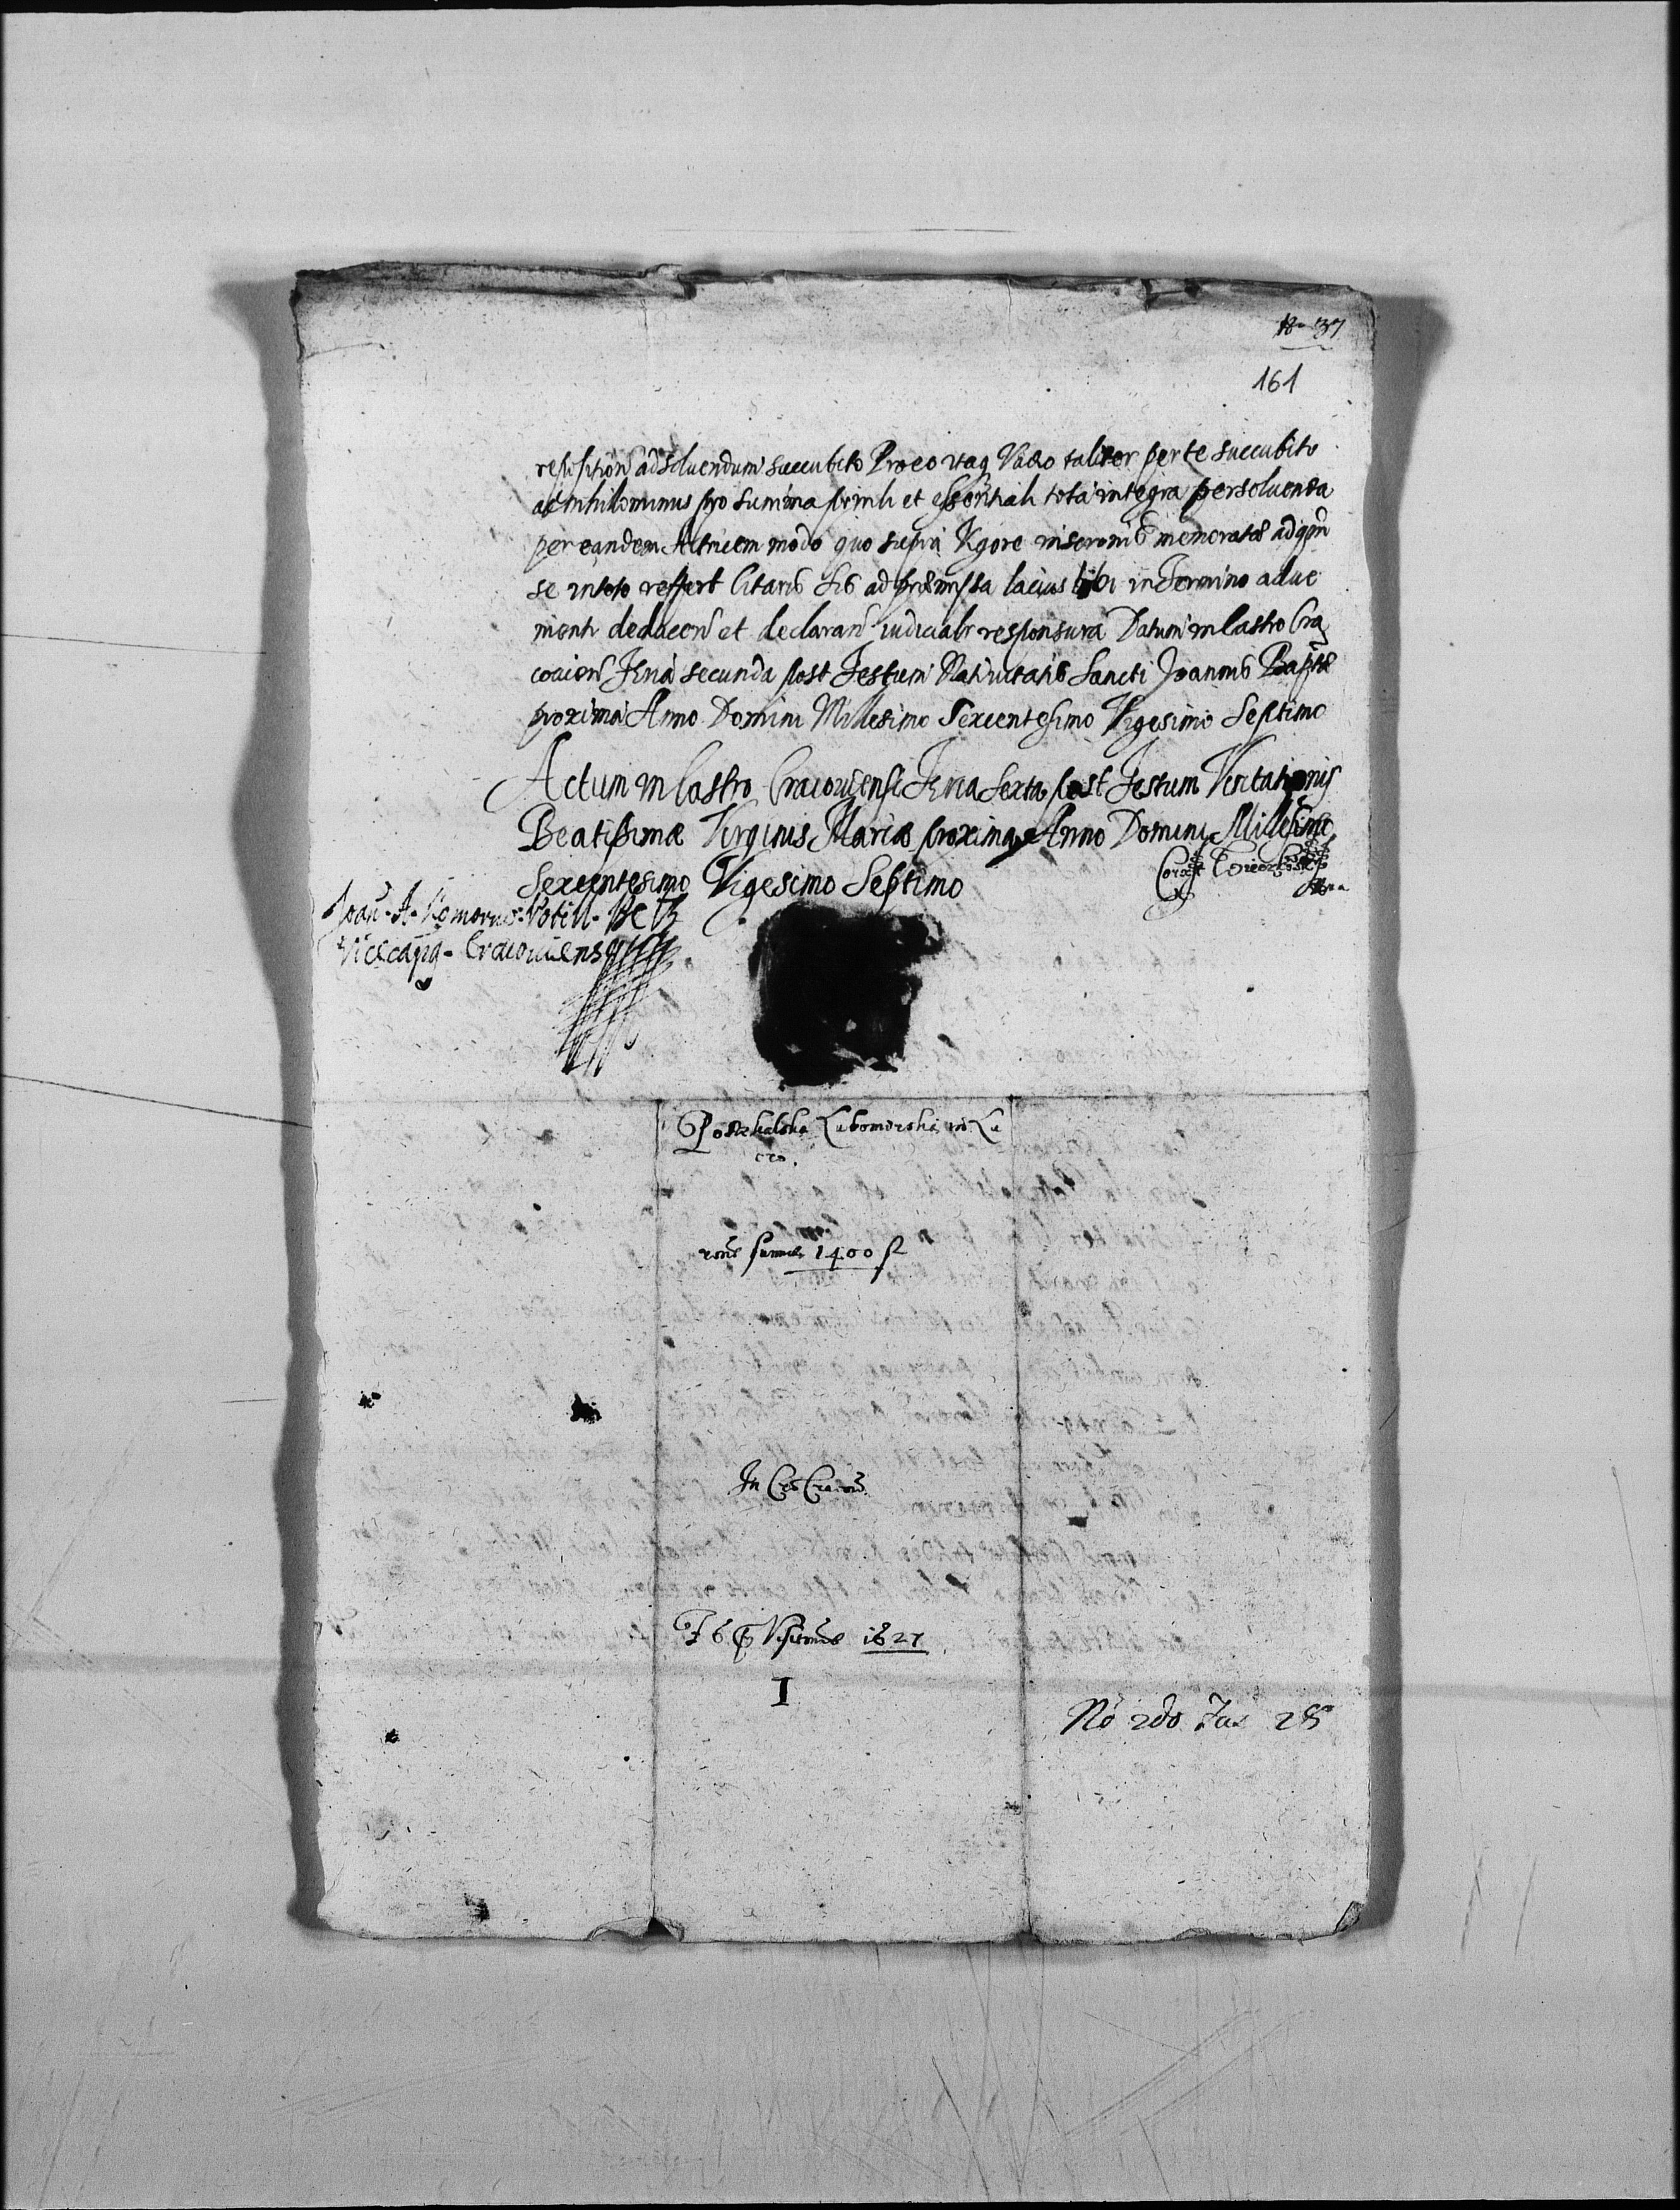 37
161
ad soluendum succubito Pro eo itaq Vadio taliter per te succubito
ac nihilominus pro summa prinli et essentiali tota integra persoluenda
per eandem Actricem modo quo supra Vigore memoratae ad
se in toto reffert Citaris ad praemissa lacius tibi in Termino adue
nienti deducen et declaran iudicialr responsura Datum in Castro Cra
couien Feria secunda post Festum Natiuitatis Sancti Joannis Baptae
proxima Anno Domini Millesimo Sexcentesimo Vigesimo Septimo
Actum in Castro Cracouiensi Feria Sexta post Festum Visitationis
Beatissimae Virginis Mariae proxima Anno Domini Millesimo
Sexcentesimo Vigesimo Septimo
Joan. A. Komornic
Vicecapta. Cracouiens
Lubomirski in Lu
cro.
rone summae 1400 f
In Cro Cracou
F 6 p Visitonis 1627
I
No 2do Fas 28